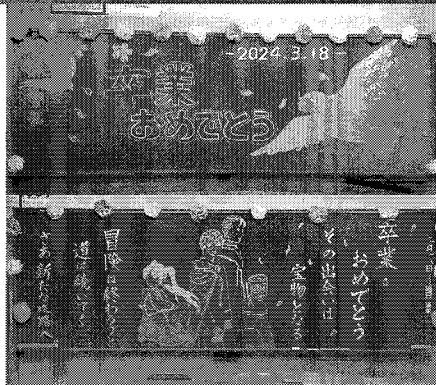 −2024.3.18−
卒業
おめでとう
卒業
おめでとう
その出会いは
宝物となる
冒険は終わらない
さあ新たな